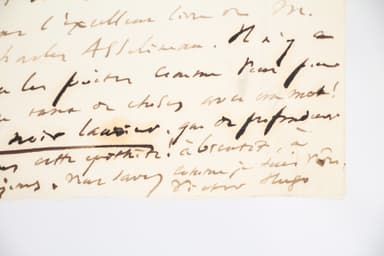 l'excellent livre de M.
Charles Asselineau. Il y a
les poètes comme vous pour
de choses avec un mot!
noir laurier, que de profondeur
cette épithète! à bientôt, à
vous savez comme je suis à vous.
Victor Hugo